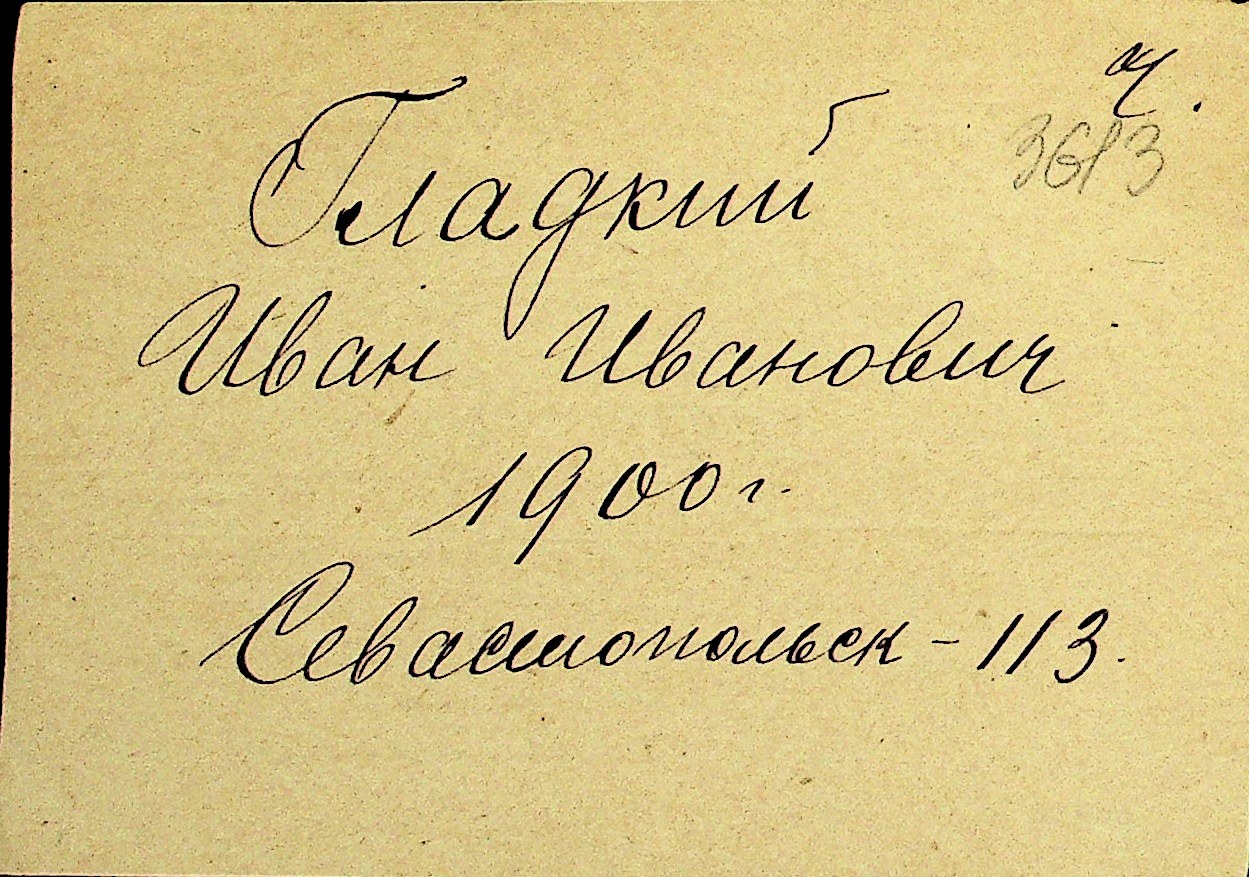 ч.
3613
Гладкий
Иван Иванович
1900 г.
Севастопольск - 113.